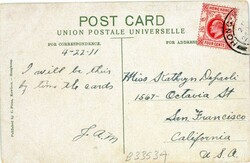 POST CARD
UNION POSTALE UNIVERSELLE
FOR CORRESPONDENCE.
FOR ADDRESS
4-22-11
I will be this
by two the cards
J.A.M
Miss Kathryn
1567- Octavia St
San Francisco
California
U.S.A
B33534
HONG
FOUR CENTS